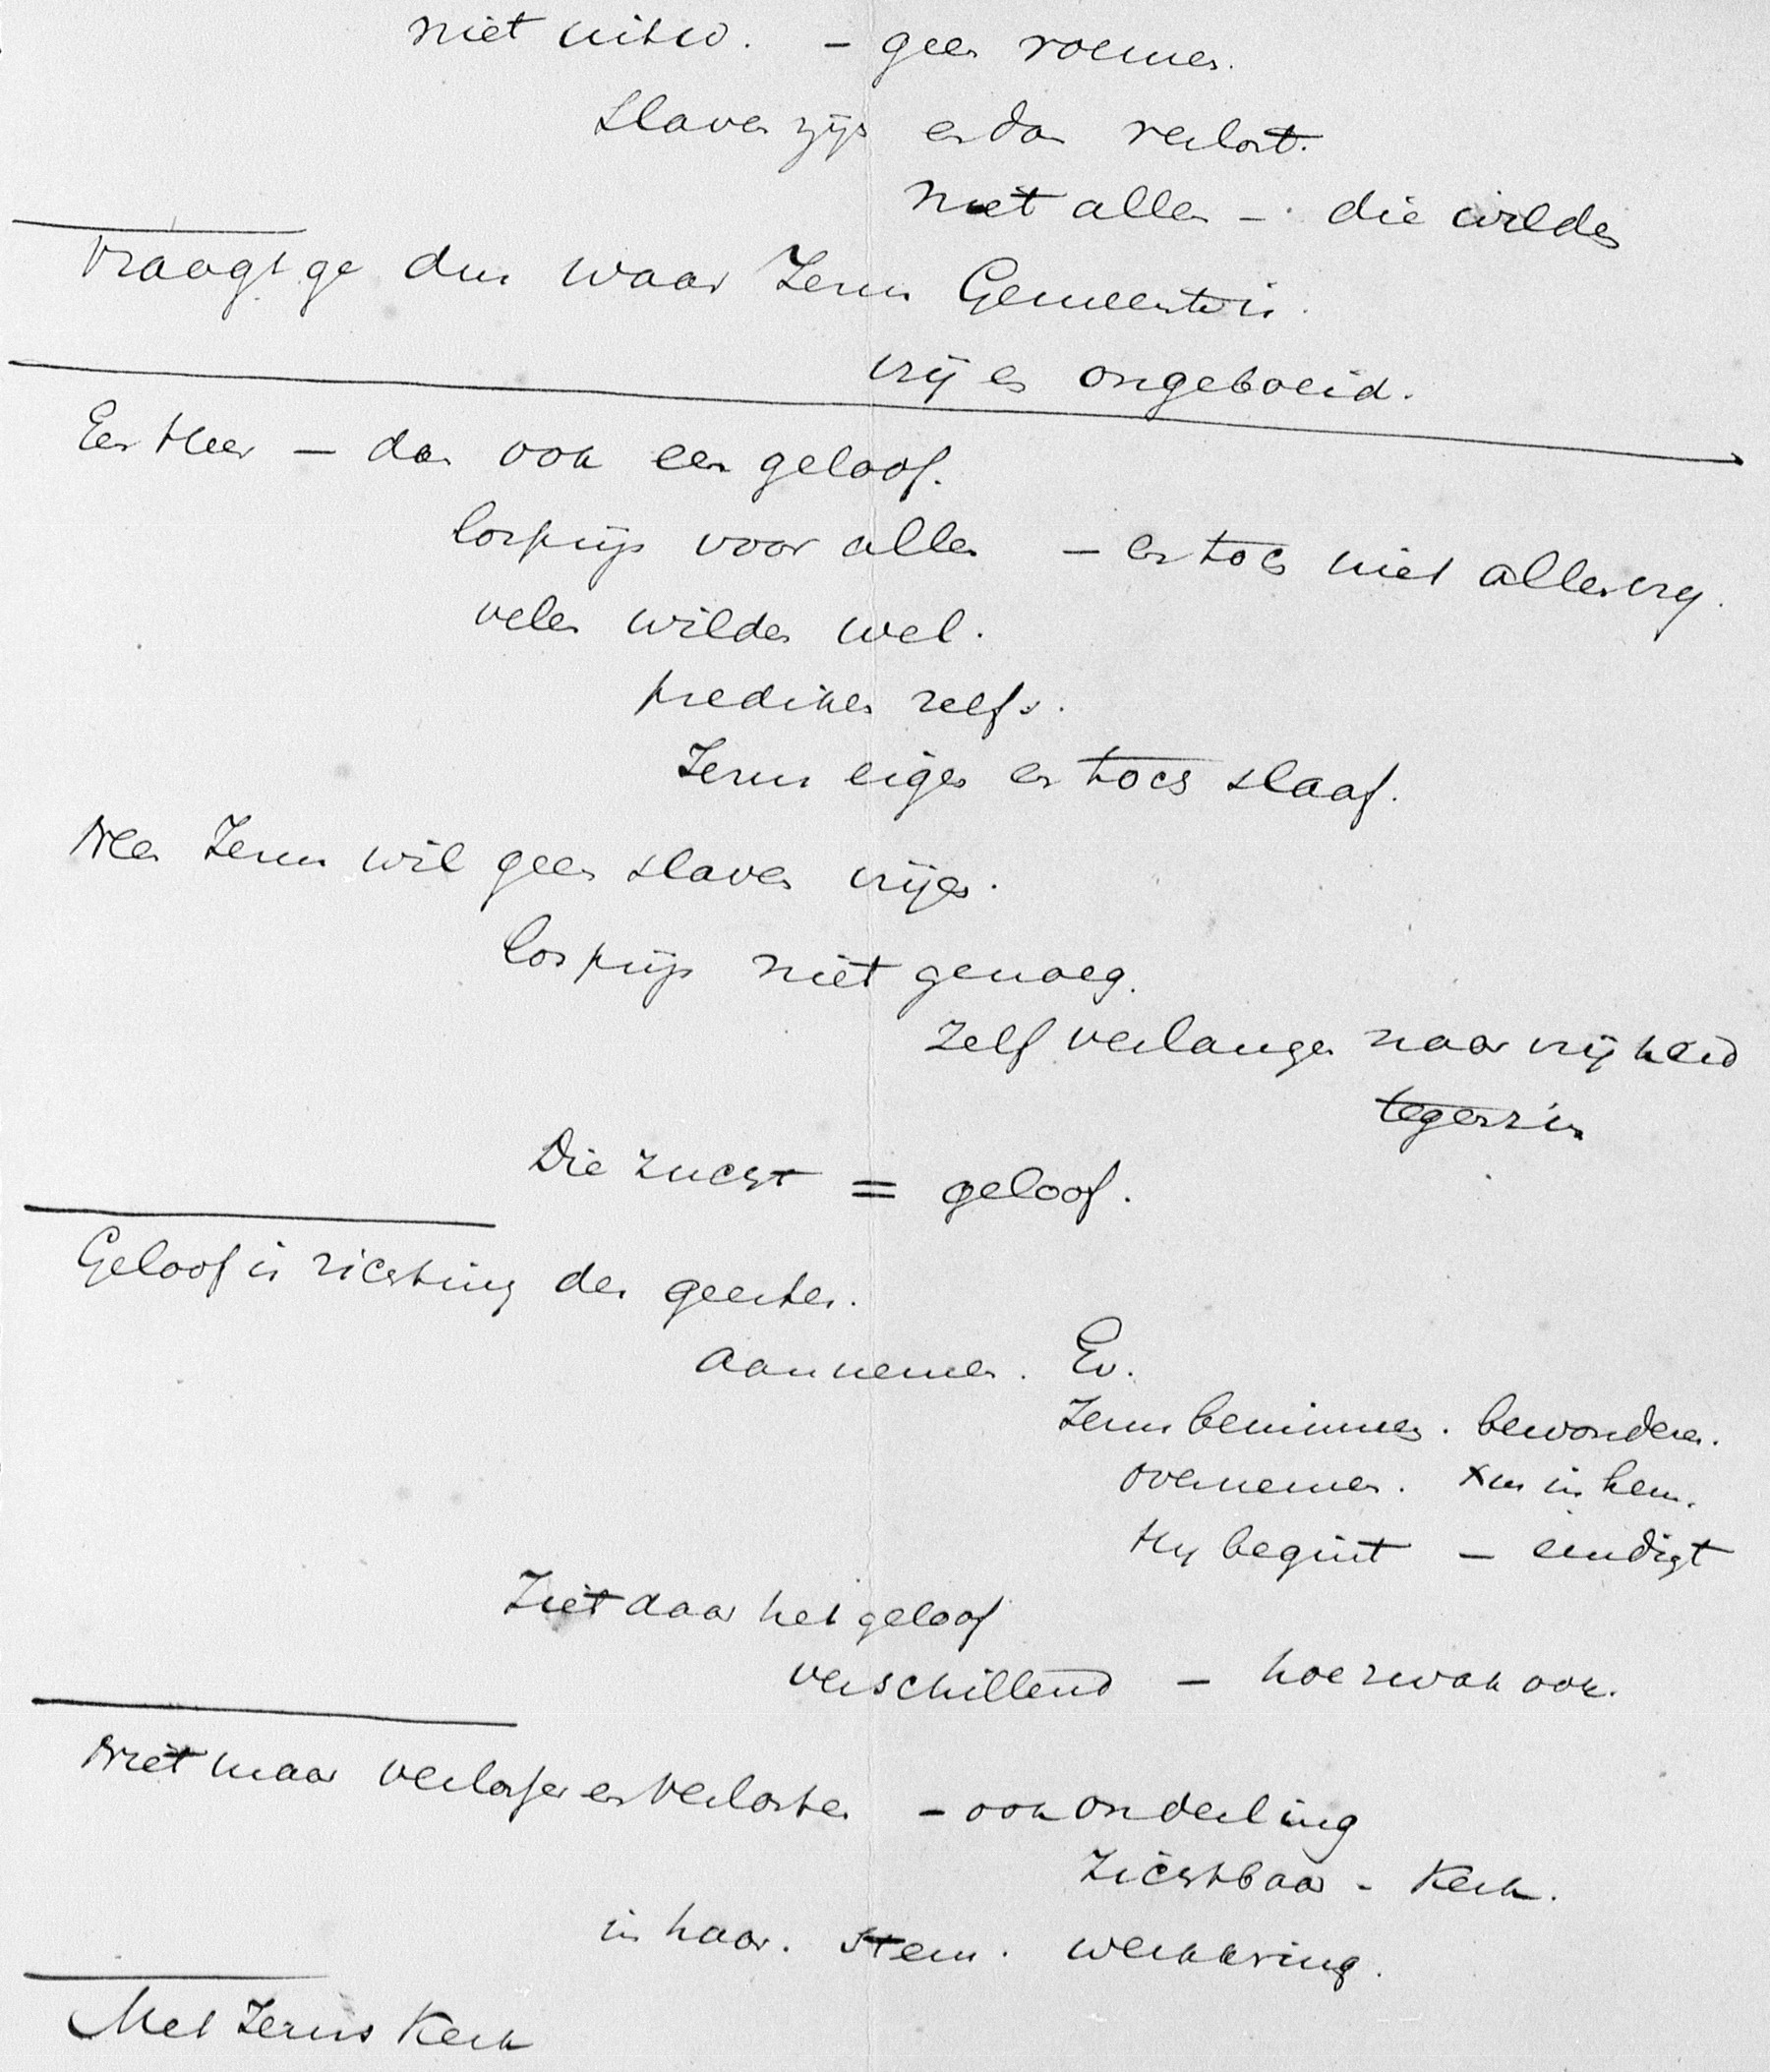 niet uitw. – geen roemen.
Slaven zijn en dan verlost.
niet allen – die wilden
Vraagt ge dus waar Jezus Gemeente is.
vrij en ongeboeid.
Een Heer – dan ook een geloof.
losprijs voor allen – en toch niet allen vrij.
velen wilden wel.
prediken zelfs.
Jezus eigen en toch slaaf.
Neen Jezus wil geen slaven vrijen.
losprijs niet genoeg.
Zelf verlangen naar vrijheid
tegenzin
Die zucht = geloof.
Geloof is richting des geestes.
aannemen. Ev.
Jezus beminnen. bewonderen.
overnemen. Xus in hem.
Hy begint – eindigt
Ziet daar het geloof
verschillend – hoe zwak ook.
Niet maar verlosser en verlosten – ook onderling
Zichtbaar – Kerk.
in haar. stem. werkkring.
Met Jezus Kerk